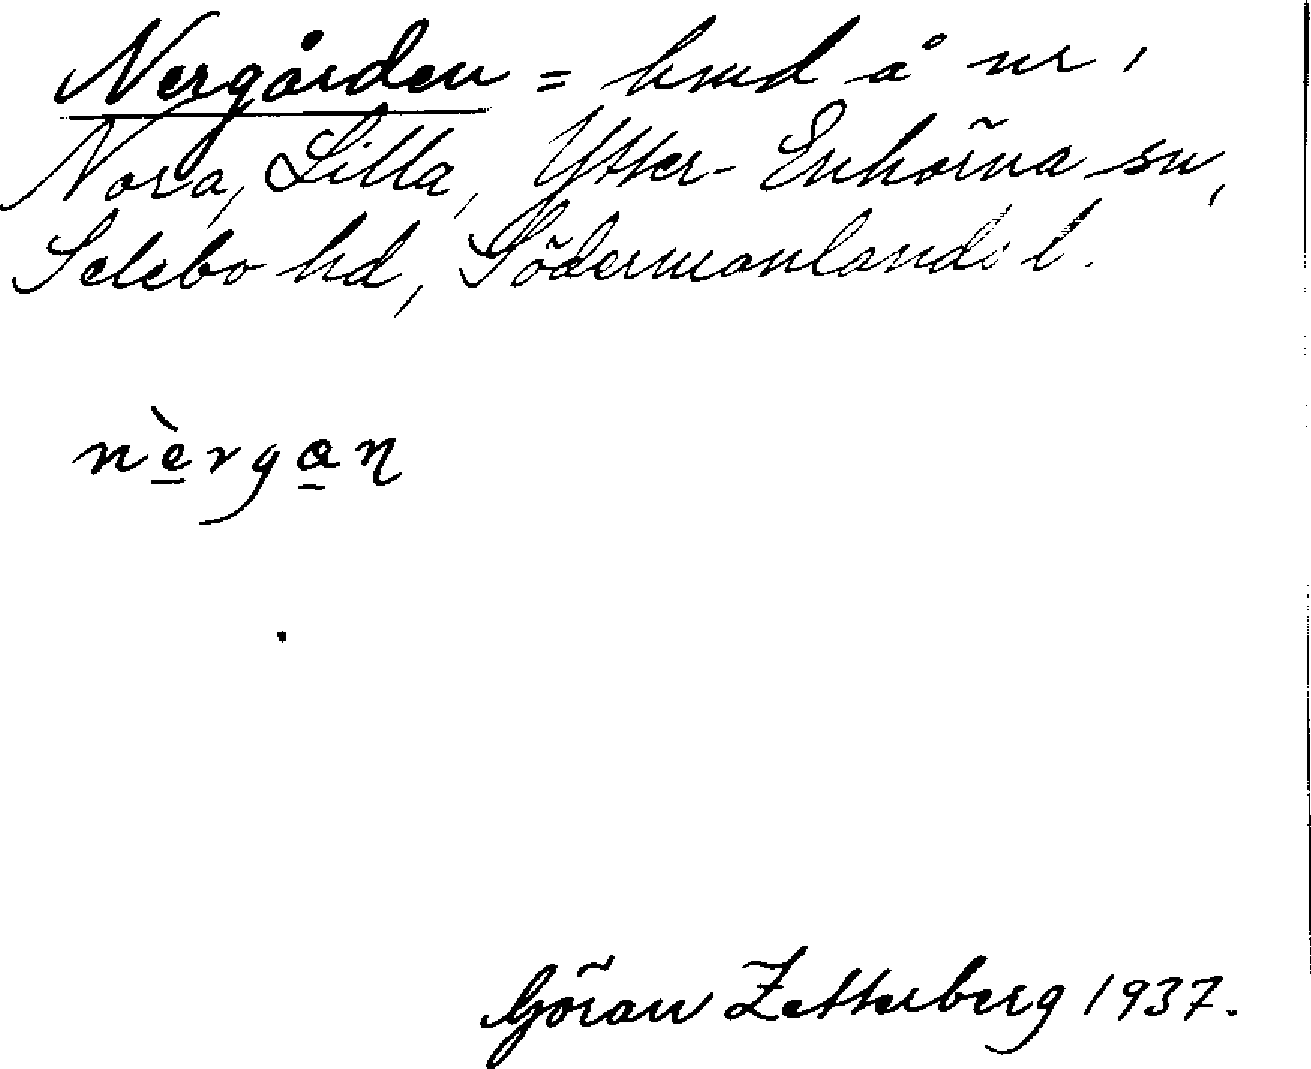 Nergården = hmd å nr 1
Nora, Lilla, Ytter-Enhörna sn,
Selebo hd, Södermanlands l.
nèrgan
Göran Zetterberg 1937.